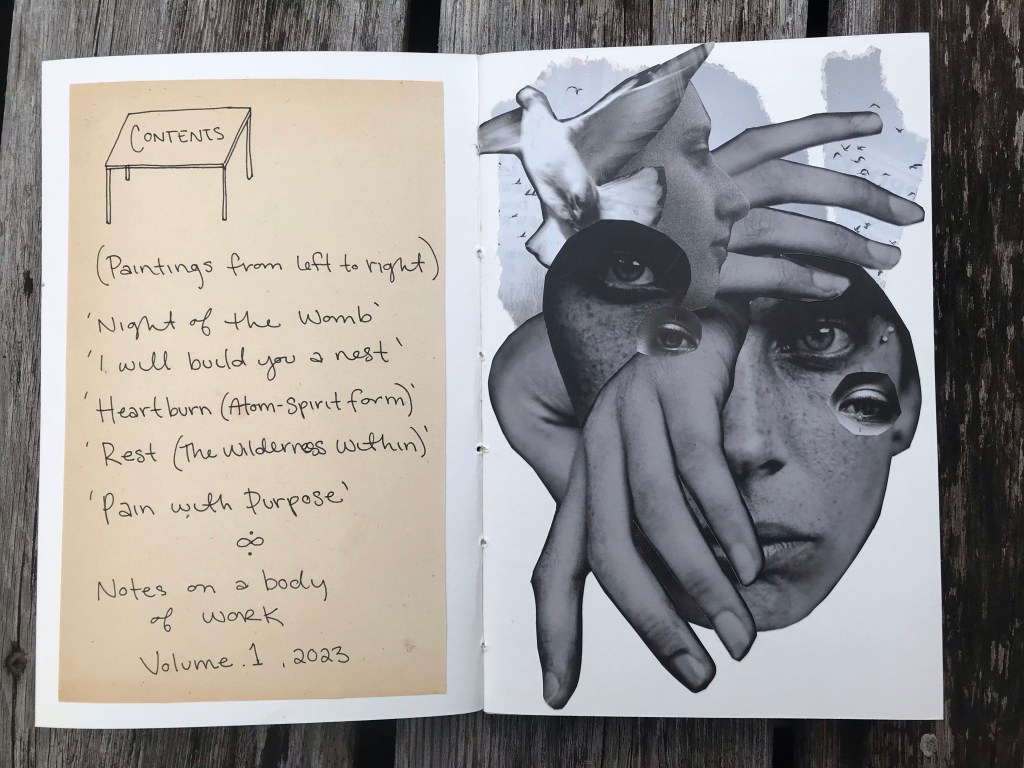 CONTENTS
(Paintings from left to right)
'Night of the Womb'
'I will build you a nest'
'Heartburn (Atom-Spirit form)'
'Rest (The Wilderness within)'
'Pain with Purpose'
Notes on a body
of WORK
Volume.1, 2023